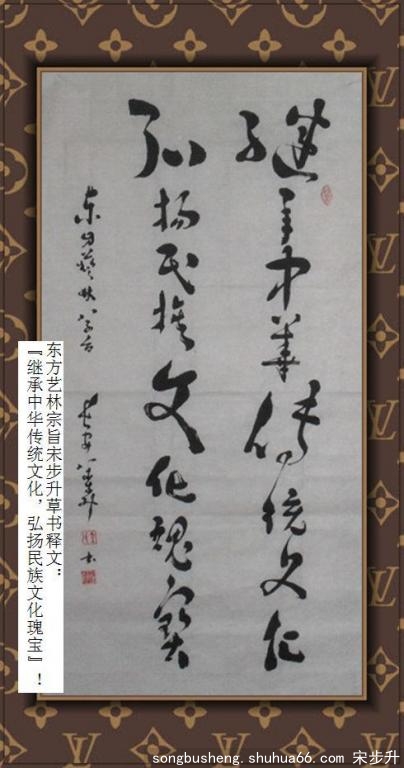 继承中華传统文化
弘扬民族文化瑰寶
东方艺林宗旨宋步升草书释文：
『继承中华传统文化，弘扬民族文化瑰宝』！
songbusheng.shuhua66.com 宋步升